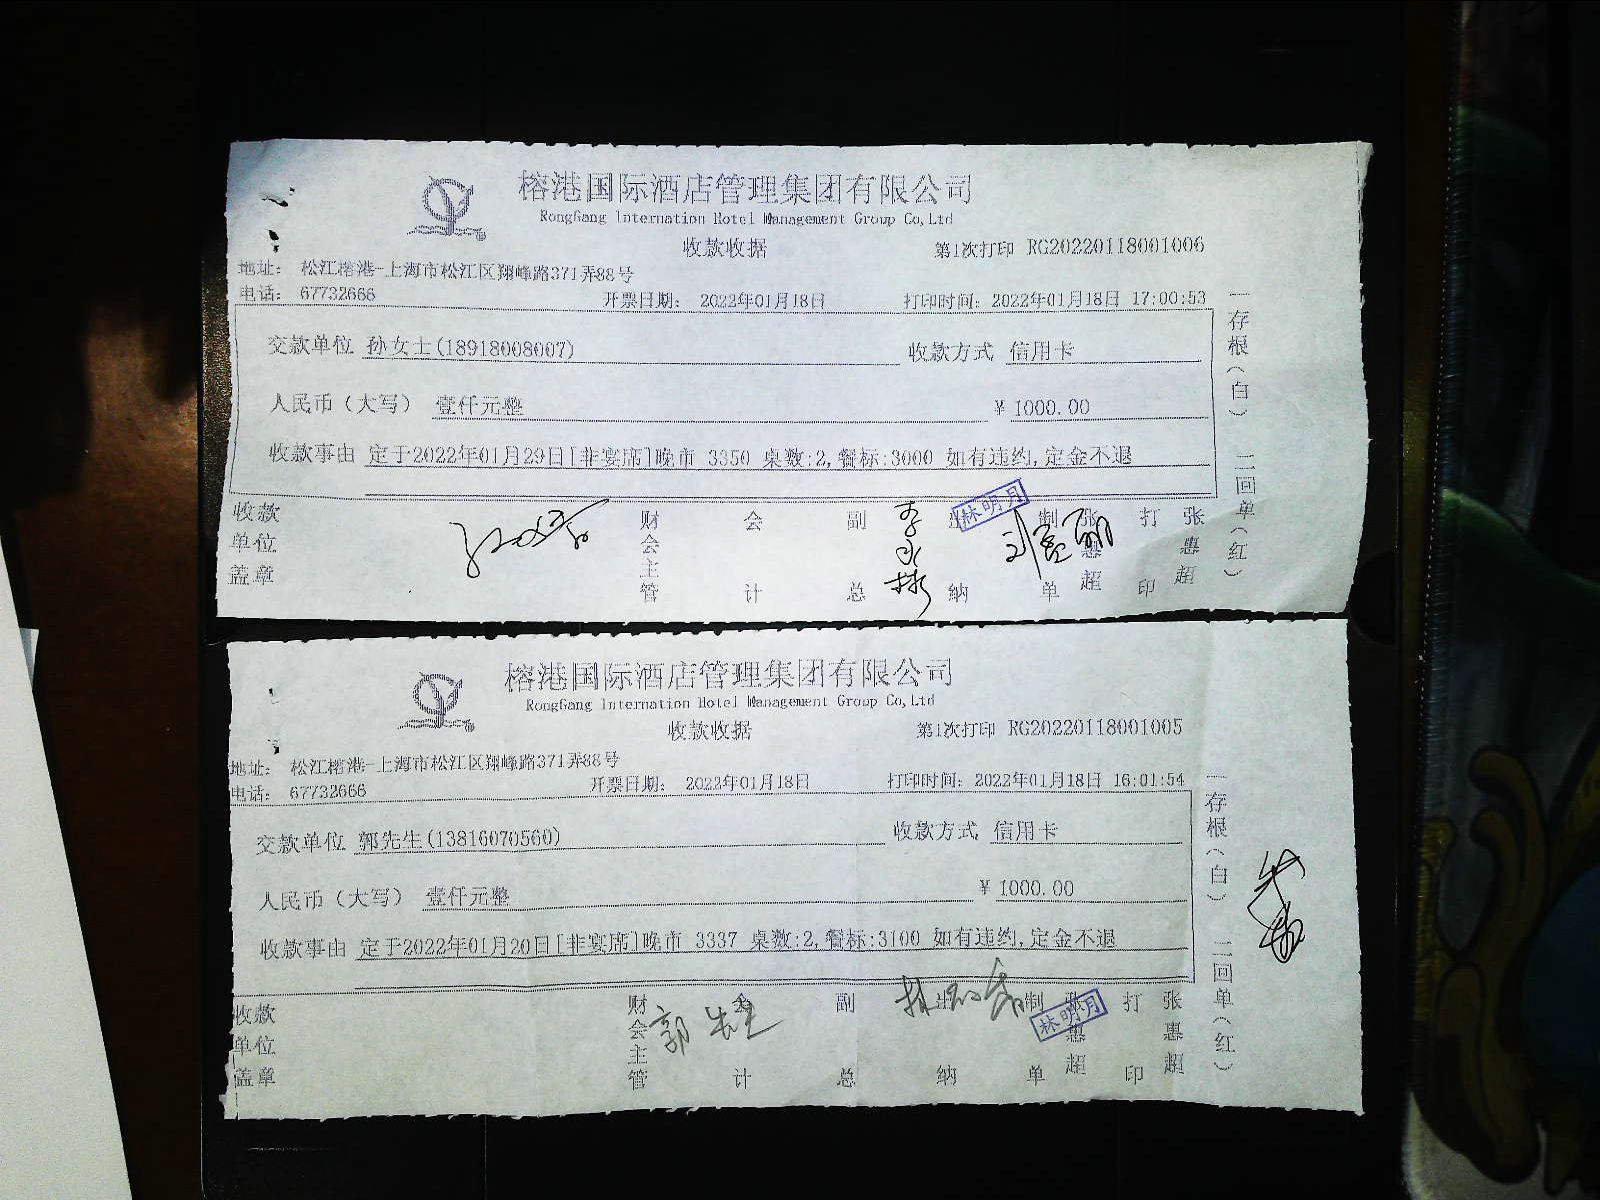 榕港国际酒店管理集团有限公司
RongGang International Hotel Management Group Co,Ltd
收款收据 第1次打印 RG20220118001006
地址： 松江榕港-上海市松江区翔峰路371弄88号
电话： 67732666 开票日期： 2022年01月18日 打印时间：2022年01月18日 17:00:53
交款单位 孙女士(18918008007) 收款方式 信用卡
人民币（大写） 壹仟元整 ￥1000.00
收款事由 定于2022年01月29日[非宴席]晚市 3350 桌数:2,餐标:3000 如有违约,定金不退
收款单位盖章 财会主管 会计 副总 李永彬 出纳 林明月 制单 张惠超 打印 张惠超
一存根（白） 二回单（红）
榕港国际酒店管理集团有限公司
RongGang International Hotel Management Group Co,Ltd
收款收据 第1次打印 RG20220118001005
地址： 松江榕港-上海市松江区翔峰路371弄88号
电话： 67732666 开票日期： 2022年01月18日 打印时间：2022年01月18日 16:01:54
交款单位 郭先生(13816070560) 收款方式 信用卡
人民币（大写） 壹仟元整 ￥1000.00
收款事由 定于2022年01月20日[非宴席]晚市 3337 桌数:2,餐标:3100 如有违约,定金不退
收款单位盖章 财会主管 郭先生 会计 副总 出纳 制单 张惠超 林明月 打印 张惠超
一存根（白） 二回单（红）